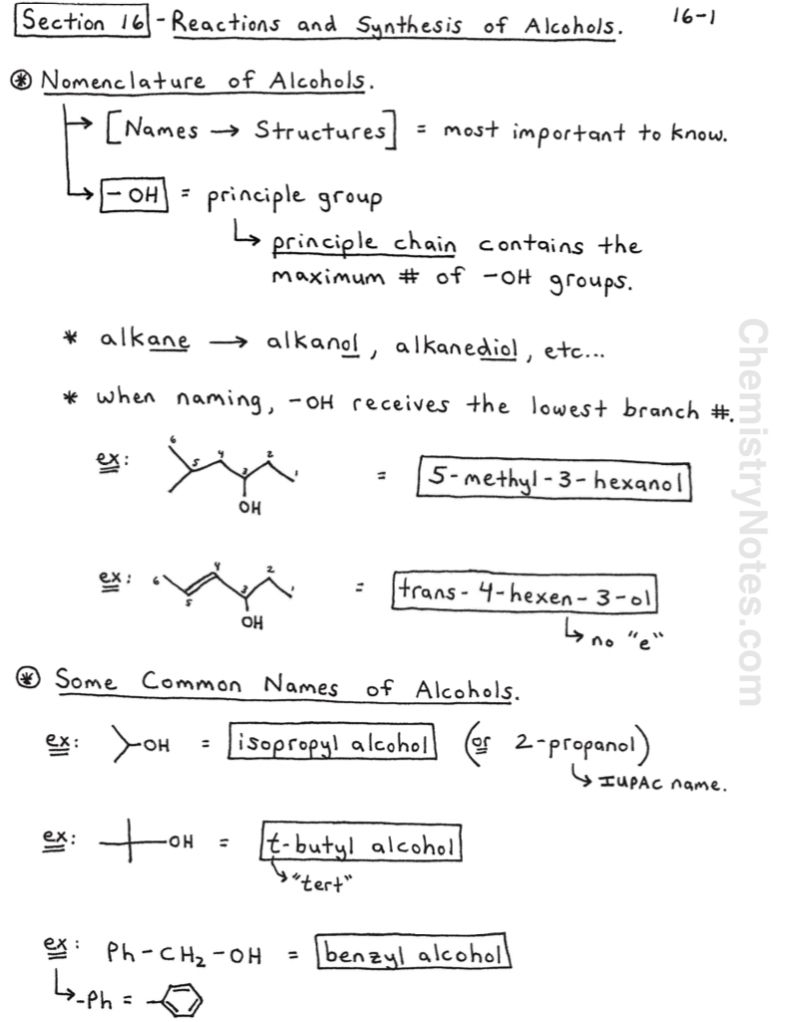 Section 16 - Reactions and Synthesis of Alcohols. 16-1
⊛ Nomenclature of Alcohols.
→ [Names → Structures] = most important to know.
→ -OH = principle group
↳ principle chain contains the
maximum # of -OH groups.
* alkane → alkanol, alkanediol, etc...
* when naming, -OH receives the lowest branch #.
ex: 6 5 4 3 2 1 OH = 5-methyl-3-hexanol
ex: 6 5 4 3 2 1 OH = trans-4-hexen-3-ol
↳ no "e"
⊛ Some Common Names of Alcohols.
ex: OH = isopropyl alcohol (or 2-propanol)
↳ IUPAC name.
ex: OH = t-butyl alcohol
↳ "tert"
ex: Ph-CH₂-OH = benzyl alcohol
↳ -Ph =
ChemistryNotes.com